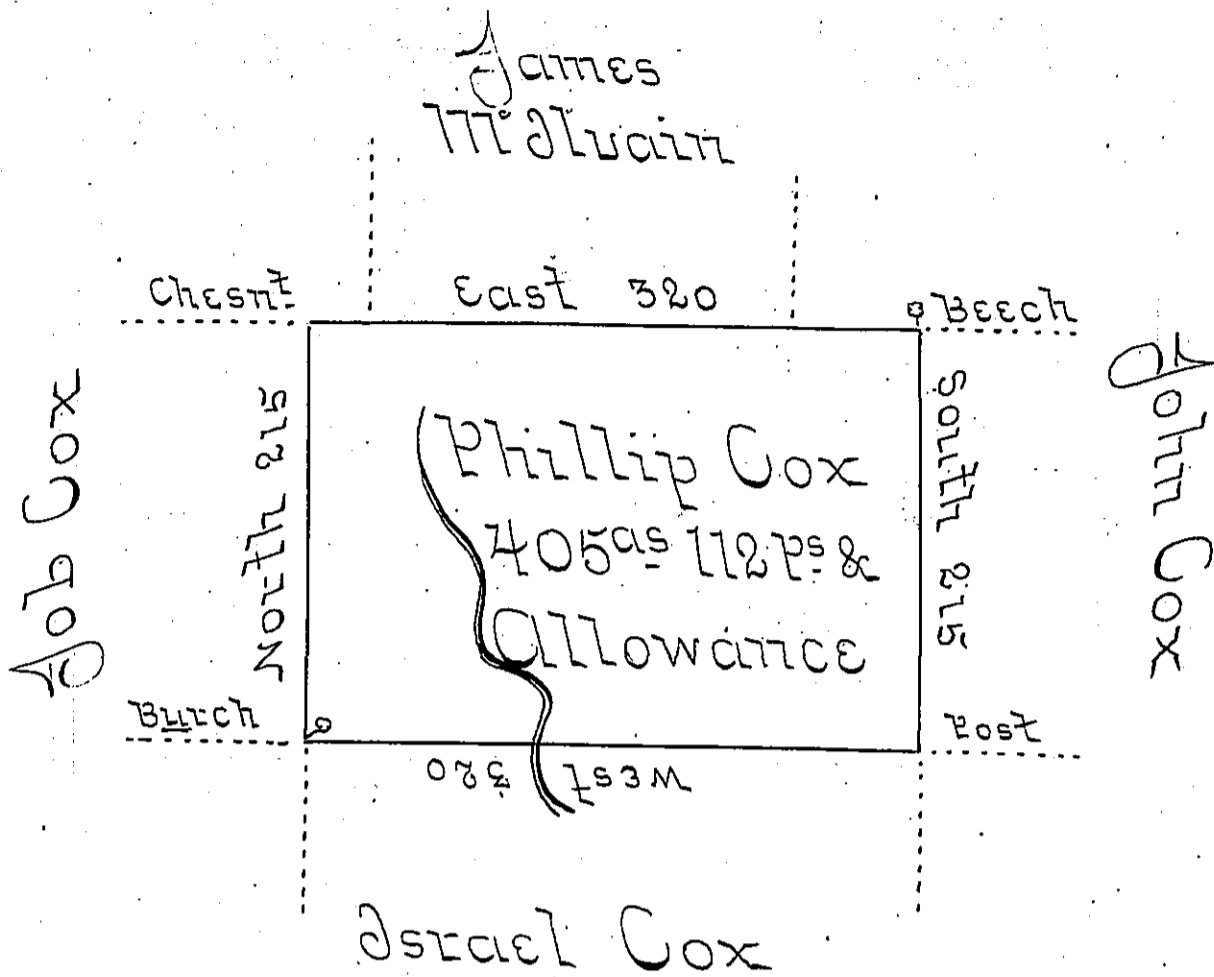 James
McIlvain
Chesnt
East 320
Beech
Job Cox
North 215
Phillip Cox
405as 112 Ps &
Allowance
South 215
John Cox
Burch
Post
West 320
Israel Cox